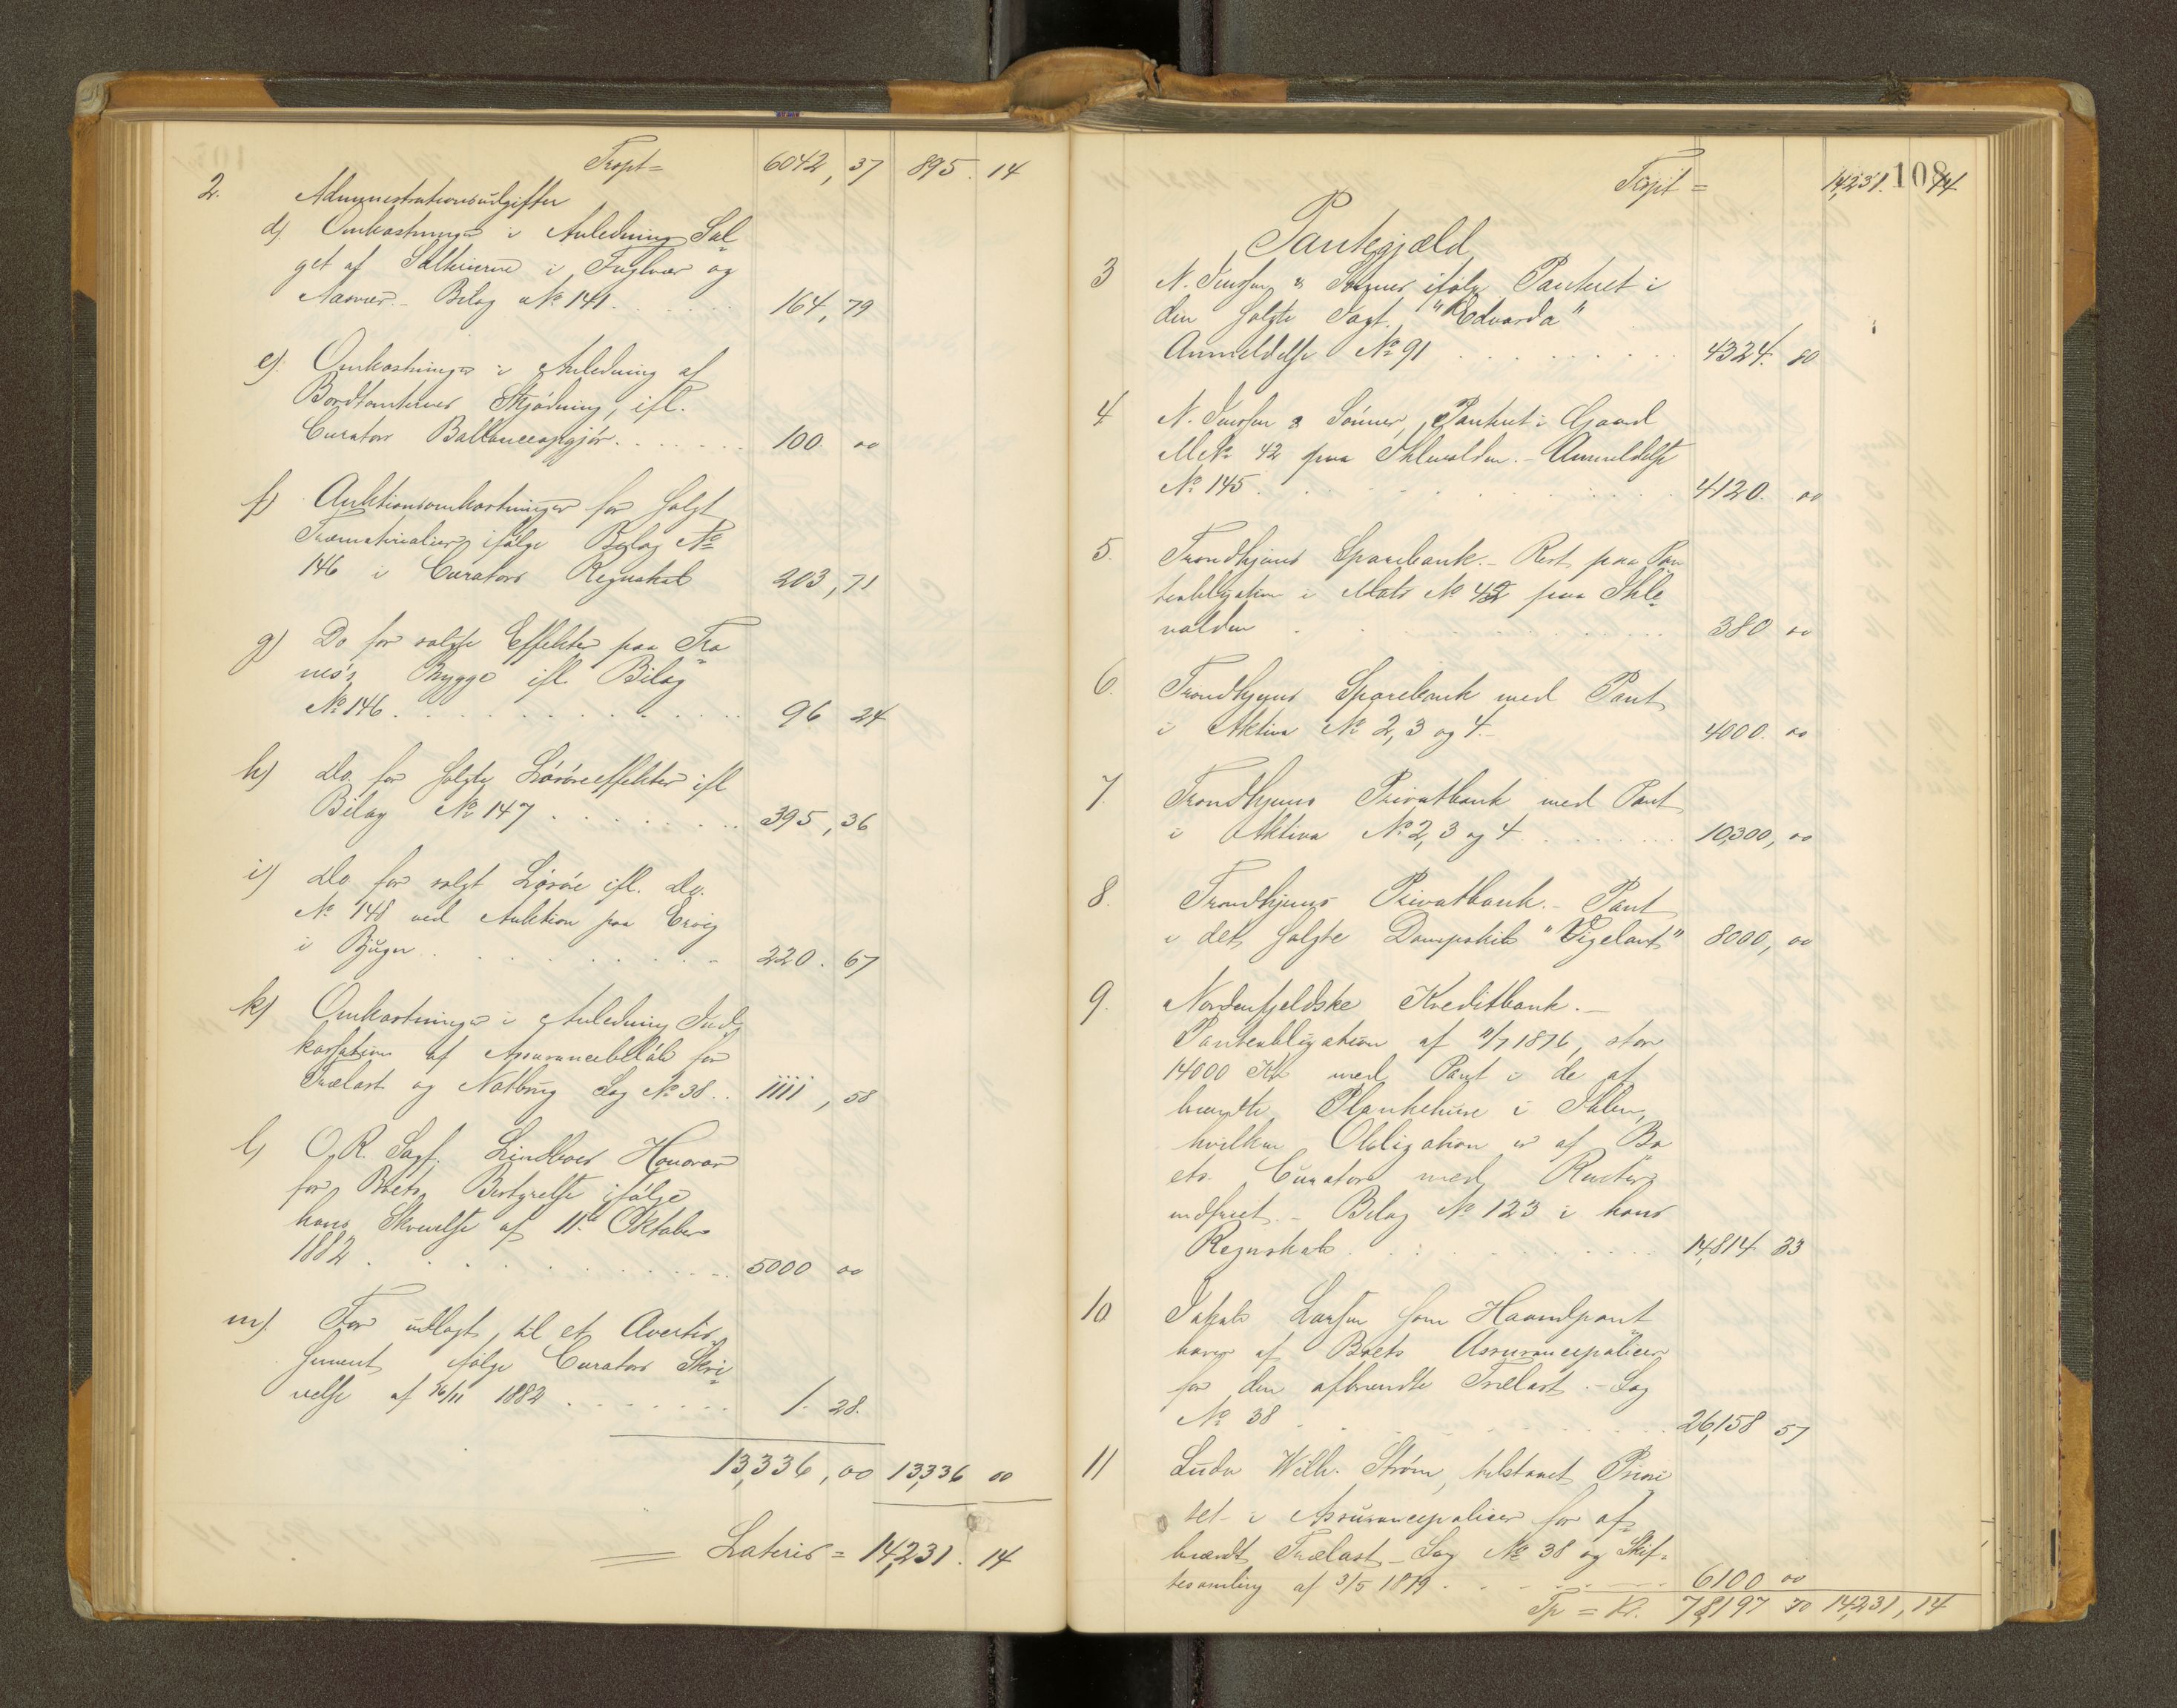 Trspt = 6042, 37 895. 14
2. Administrationsudgifter
d) Omkostninger i Anledning Sal-
get af Saltbuerne i Fuglvær og
Aasvær. - Bilag No 141 . . . . 164, 79
e). Omkostninger i Anledning af
Bordtomternes Skjødning, ifl.
Curators Ballanceopgjør . . . . 100. 00
f) Auktionsomkostninger for solgt
Træmaterialier, ifølge Bilag No
146 i Curators Regnskab 203, 71
g) Do for solgte Effekter paa Tra-
nes's Brygge ifl. Bilag
No 146 . . . . 96 24
h) Do. for solgte Løsøreeffekter ifl
Bilag No 147 . . . . 395, 36
i) Do for solgt Løsøre ifl. Do.
No 148 ved Auktion paa Ervig
i Bjugn . . . . 220. 67
k) Omkostninger i Anledning Ind-
kassation af Assurancebeløb for
Trælast og Notbrug Sag No 38 . . 1111, 58
l) O. R. Sagf. Lindboes Honorar
for Boets Bestyrelse ifølge
hans Skrivelse af 11te Oktober
1882 . . . . 5000 00
m). For udlagt, til et Avertis-
sement ifølge Curators Skri-
velse af 16/11 1882 . . . . 1. 28.
13,336, 00 13,336 00
Lateris = 14,231. 14
108
Trspt = 14,231. 14
Pantegjæld
3 N. Jenssen & Sønner ifølge Panteret i
den solgte Jagt. "Edvarda"
Anmeldelse No 91 . . . . 4324. 80
4 N. Jenssen & Sønner, Panteret i Gaard
M No 42 paa Ihlevolden. - Anmeldelse
No 145 . . . . 4120. 00
5. Trondhjems Sparebank. - Rest paa Pan-
teobligation i Matr No 42 paa Ihle-
volden . . . . 380 00
6. Trondhjems Sparebank med Pant
i Aktiva No 2, 3 og 4. - 4000. 00
7. Trondhjems Privatbank med Pant
i Aktiva No 2, 3 og 4 . . . . 10,300, 00
8. Trondhjems Privatbank. - Pant
i det solgte Dampskib "Vigelant" 8000, 00
9. Nordenfjeldske Kreditbank. -
Panteobligation af 11/7 1876, stor
14000 Kr med Pant i de af-
brændte Plankehuse i Ihlen,
hvilken Obligation er af Bo-
ets Curator med Renter
indfriet. - Bilag No 123 i hans
Regnskab . . . . 14,814 33
10. Jakob Larsen som Haandpant-
haver af Boets Assurancepolicer
for den afbrændte Trælast. - Sag
No 38 . . . . 26,158 57
11 Ludv Wilh. Strøm, tilstaaet Priori-
tet i Assurancepolicer for af-
brændt Trælast - Sag No 38 og Skif-
tesamling af 3/5 1879 . . . . 6100 00
Tp = Kr. 78,197 70 14,231, 14